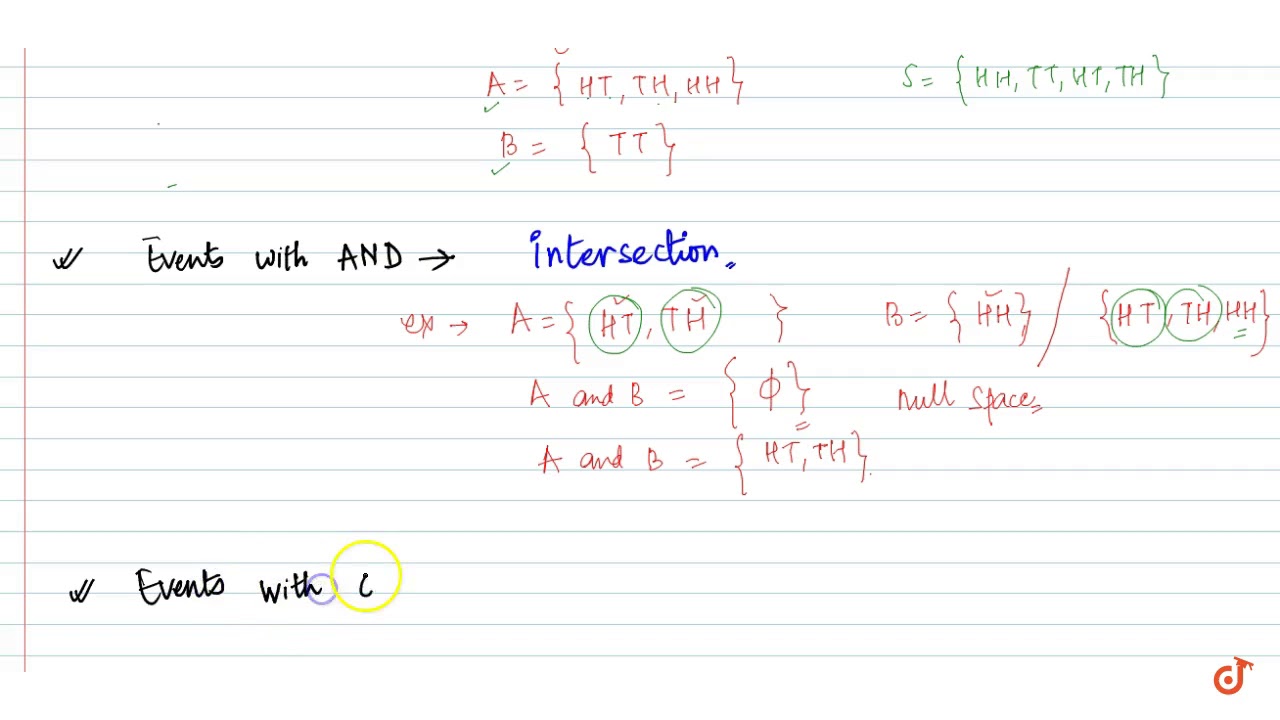 A = { HT, TH, HH} S = {HH, TT, HT, TH}
B = { TT}
Events with AND → intersection.
ex → A = { HT, TH } B = { HH} / {HT, TH, HH}
A and B = { ϕ} null space
A and B = { HT, TH}
Events with C